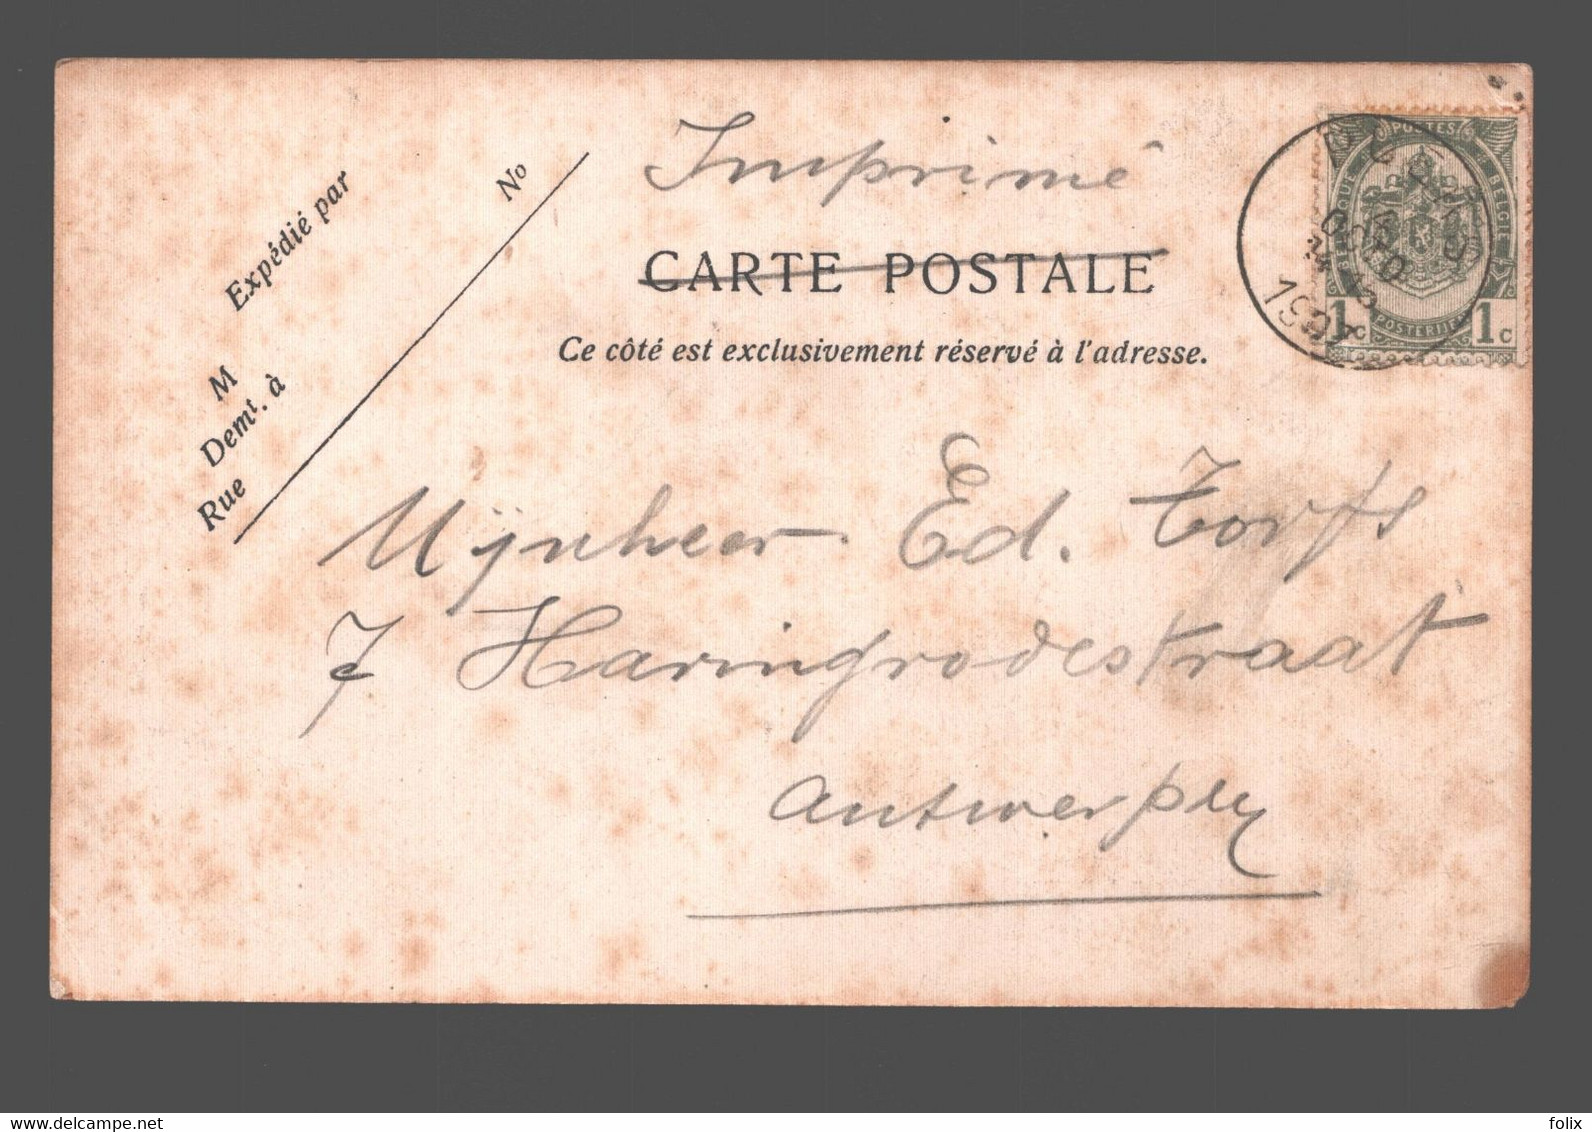 Imprimé
CARTE POSTALE
Ce côté est exclusivement réservé à l'adresse.
Expédié par
No
M
Demt. à
Rue
POSTES
BELGIE
POSTERIJEN
1c 1c
Mijnheer Ed. Torfs
7 Haringrodestraat
Antwerpen
delcampe.net
folix